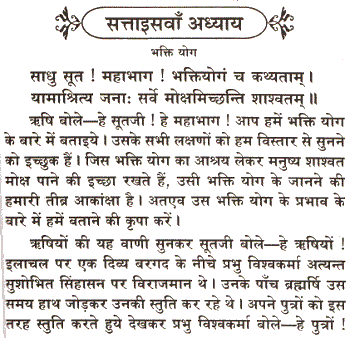 सत्ताइसवाँ अध्याय
भक्ति योग
साधु सूत ! महाभाग ! भक्तियोगं च कथ्यताम् ।
यामाश्रित्य जनाः सर्वे मोक्षमिच्छन्ति शाश्वतम् ॥
ऋषि बोले—हे सूतजी ! हे महाभाग ! आप हमें भक्ति योग
के बारे में बताइये । उसके सभी लक्षणों को हम विस्तार से सुनने
को इच्छुक हैं । जिस भक्ति योग का आश्रय लेकर मनुष्य शाश्वत
मोक्ष पाने की इच्छा रखते हैं, उसी भक्ति योग के जानने की
हमारी तीव्र आकांक्षा है । अतएव उस भक्ति योग के प्रभाव के
बारे में हमें बताने की कृपा करें ।
ऋषियों की यह वाणी सुनकर सूतजी बोले—हे ऋषियों !
इलाचल पर एक दिव्य बरगद के नीचे प्रभु विश्वकर्मा अत्यन्त
सुशोभित सिंहासन पर विराजमान थे । उनके पाँच ब्रह्मर्षि उस
समय हाथ जोड़कर उनकी स्तुति कर रहे थे । अपने पुत्रों को इस
तरह स्तुति करते हुये देखकर प्रभु विश्वकर्मा बोले—हे पुत्रों !